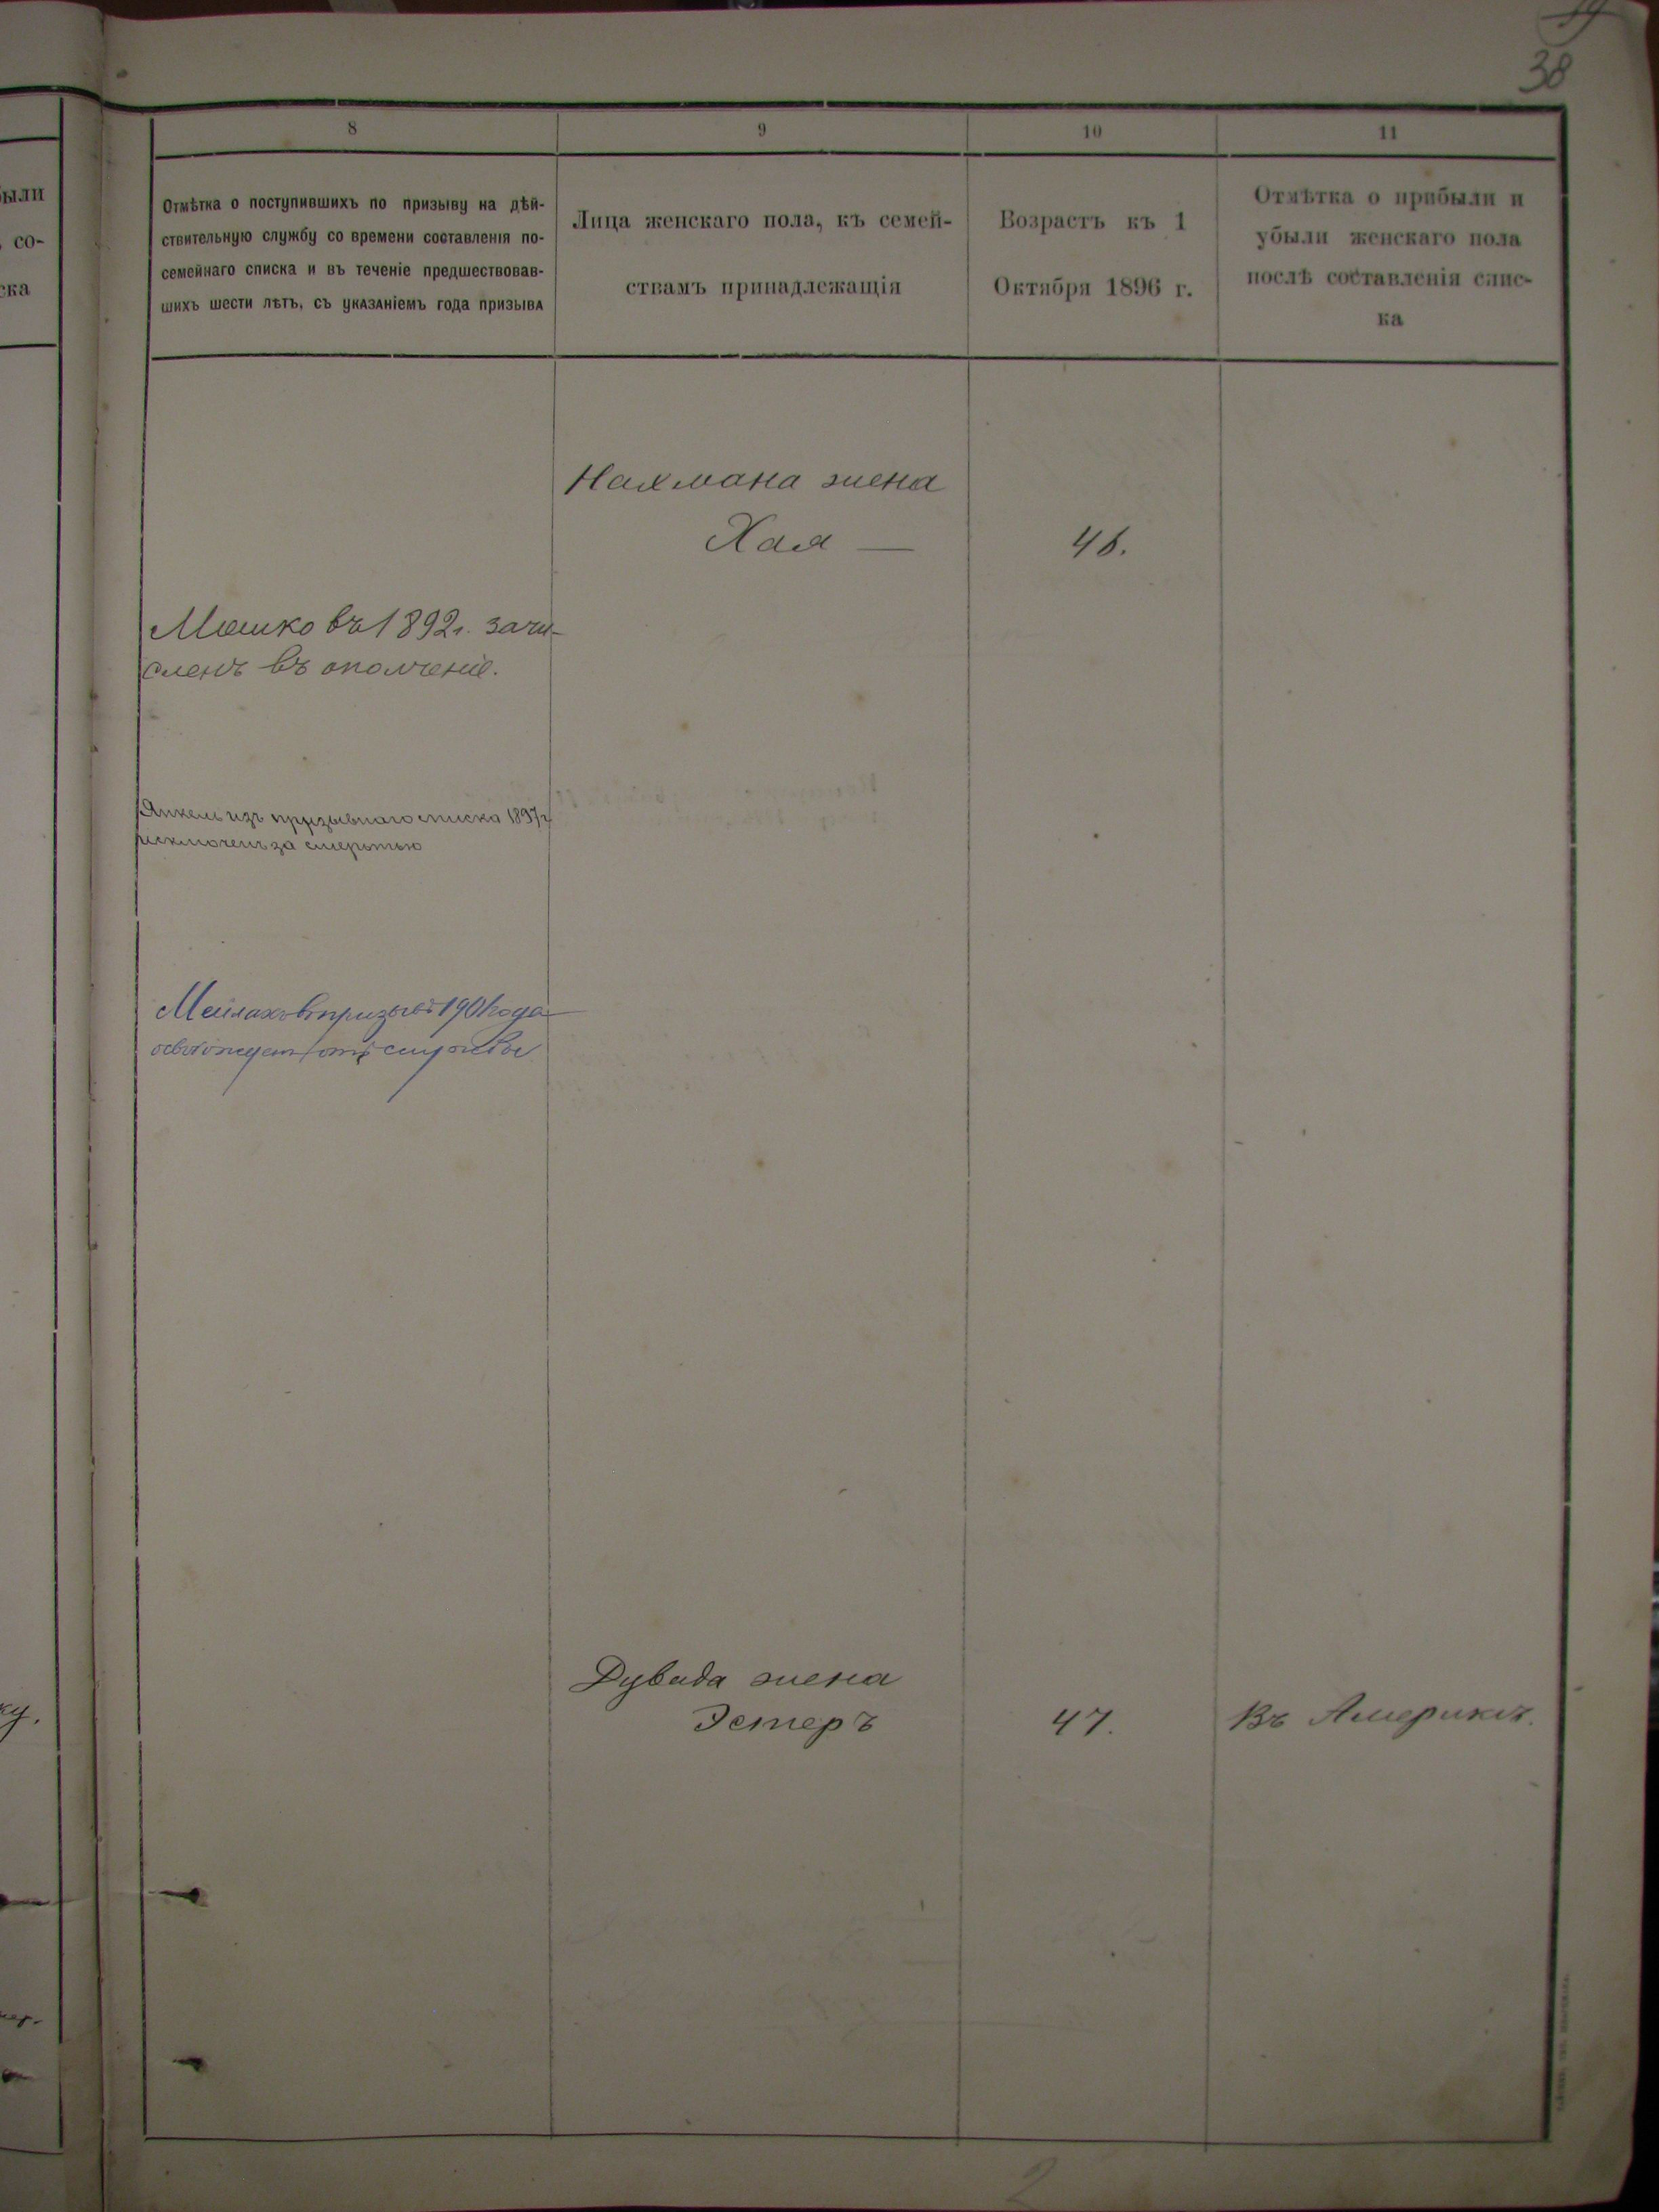 38
8
9
10
11
ыли
со-
ска
Отмѣтка о поступившихъ по призыву на дѣй-
ствительную службу со времени составленія по-
семейнаго списка и въ теченіе предшествовав-
шихъ шести лѣтъ, съ указаніемъ года призыва
Лица женскаго пола, къ семей-
ствамъ принадлежащія
Возрастъ къ 1
Октября 1896 г.
Отмѣтка о прибыли и
убыли женскаго пола
послѣ составленія спис-
ка
Нахмана жена
Хая — 46.
Мошко въ 1892 г. зачи-
сленъ въ ополченіе.
Янкель изъ призывнаго списка 1897 г
исключенъ за смертью
Мейлахъ въ призывѣ 1901 года
освобожденъ отъ службы
Дувида жена
Эстеръ 47. Въ Америкѣ.
2